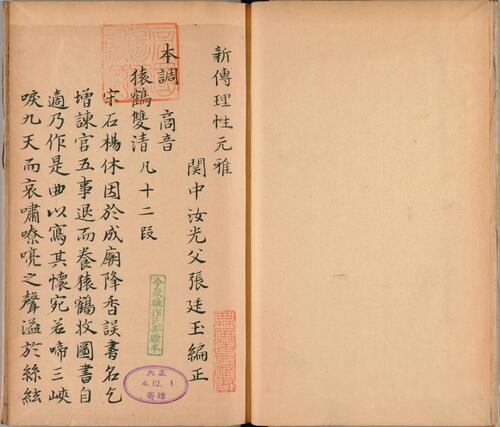 新傳理性元雅
関中汝光父張廷玉編正
本調 商音
猿鶴雙清 凡十二段
宋石楊休因於成廟降香誤書名乞
增諫官五事退而養猿鶴收圖書自
適乃作是曲以寫其懷宛若啼三峽
唳九天而哀嘯嘹喨之聲溢於絲絃
大正
4.12.1
寄贈